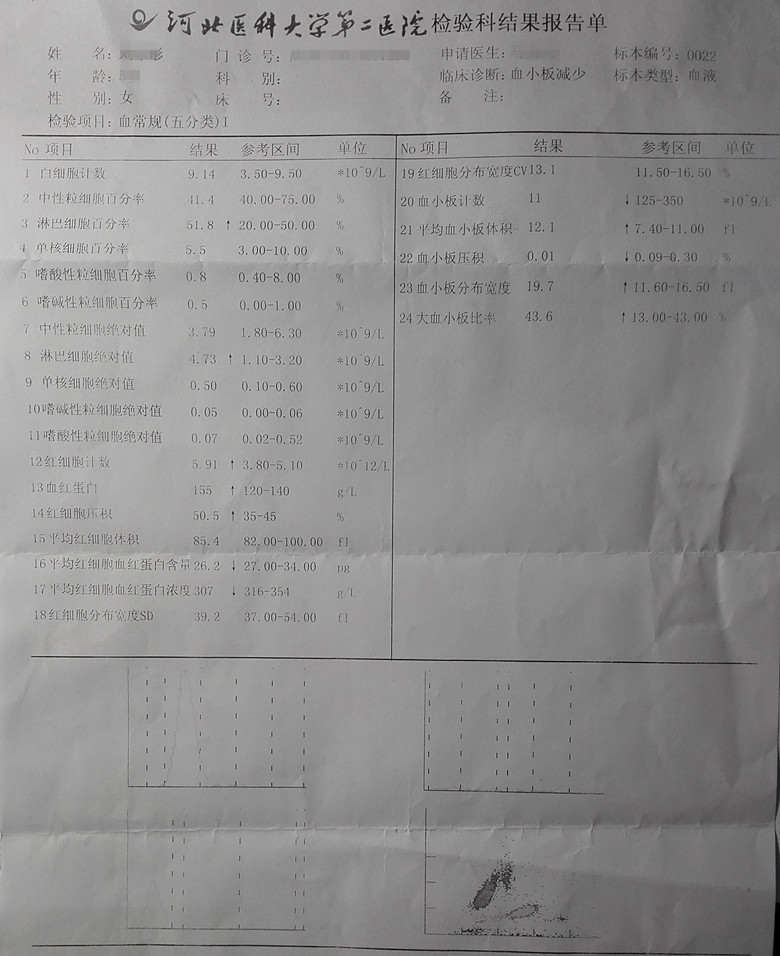 河北医科大学第二医院检验科结果报告单
姓 名: 门 诊 号: 申请医生: 标本编号: 0022
年 龄: 科 别: 临床诊断: 血小板减少 标本类型: 血液
性 别: 女 床 号: 备 注:
检验项目: 血常规(五分类)I
No 项目 结果 参考区间 单位
1 白细胞计数 9.14 3.50-9.50 *10^9/L
2 中性粒细胞百分率 41.4 40.00-75.00 %
3 淋巴细胞百分率 51.8 ↑ 20.00-50.00 %
4 单核细胞百分率 5.5 3.00-10.00 %
5 嗜酸性粒细胞百分率 0.8 0.40-8.00 %
6 嗜碱性粒细胞百分率 0.5 0.00-1.00 %
7 中性粒细胞绝对值 3.79 1.80-6.30 *10^9/L
8 淋巴细胞绝对值 4.73 ↑ 1.10-3.20 *10^9/L
9 单核细胞绝对值 0.50 0.10-0.60 *10^9/L
10 嗜碱性粒细胞绝对值 0.05 0.00-0.06 *10^9/L
11 嗜酸性粒细胞绝对值 0.07 0.02-0.52 *10^9/L
12 红细胞计数 5.91 ↑ 3.80-5.10 *10^12/L
13 血红蛋白 155 ↑ 120-140 g/L
14 红细胞压积 50.5 ↑ 35-45 %
15 平均红细胞体积 85.4 82.00-100.00 fl
16 平均红细胞血红蛋白含量 26.2 ↓ 27.00-34.00 pg
17 平均红细胞血红蛋白浓度 307 ↓ 316-354 g/L
18 红细胞分布宽度SD 39.2 37.00-54.00 fl
No 项目 结果 参考区间 单位
19 红细胞分布宽度CV 13.1 11.50-16.50 %
20 血小板计数 11 ↓ 125-350 *10^9/L
21 平均血小板体积 12.1 ↑ 7.40-11.00 fl
22 血小板压积 0.01 ↓ 0.09-0.30 %
23 血小板分布宽度 19.7 ↑ 11.60-16.50 fl
24 大血小板比率 43.6 ↑ 13.00-43.00 %